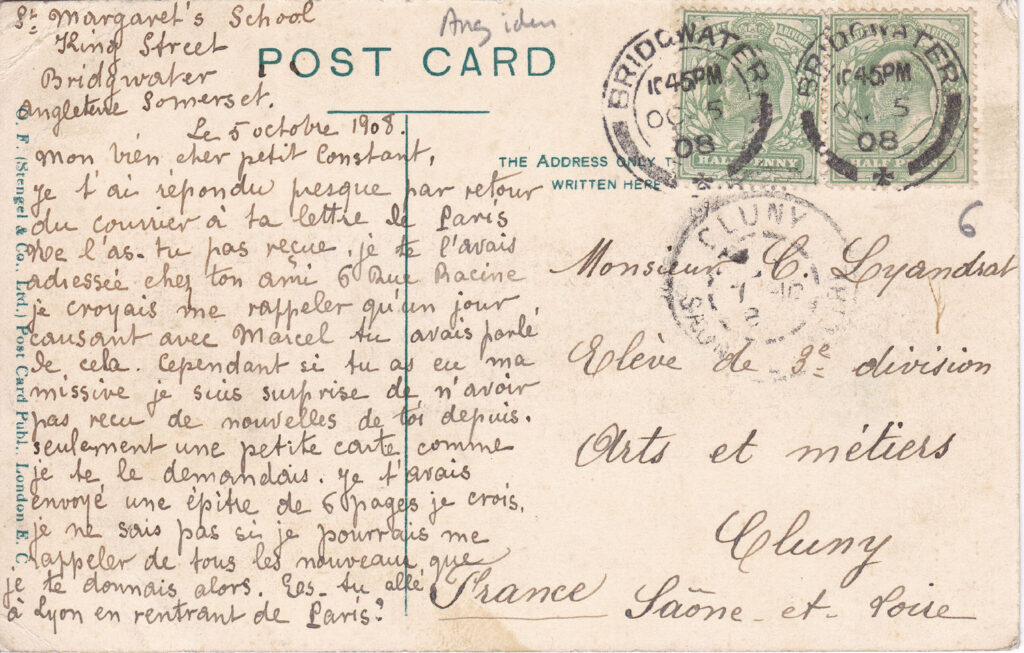 St Margaret's School
King Street
Bridgwater
Angleterre Somerset.
Le 5 octobre 1908.
Mon bien cher petit Constant,
Je t'ai répondu presque par retour
du courrier à ta lettre de Paris
Ne l'as-tu pas reçue, je te l'avais
adressée chez ton ami 6 Rue Racine
je croyais me rappeler qu'un jour
causant avec Marcel tu avais parlé
de cela. Cependant si tu as eu ma
missive je suis surprise de n'avoir
pas reçu de nouvelles de toi depuis.
seulement une petite carte comme
je te le demandais. Je t'avais
envoyé une épitre de 6 pages je crois,
je ne sais pas si je pourrais me
rappeler de tous les nouveaux que
je te donnais alors. Ees-tu allé
à Lyon en rentrant de Paris?
POST CARD
THE ADDRESS ONLY T
WRITTEN HERE
BRIDGWATER
10 45 PM
OC 5
08
BRIDGWATER
10 45 PM
OC 5
08
HALF PENNY
HALF PE
CLUNY
6
Monsieur C. Lyandrat
Elève de 3e division
Arts et métiers
Cluny
France Saône-et-Loire
(Stengel & Co., Ltd.) Post Card Publ., London E. C.